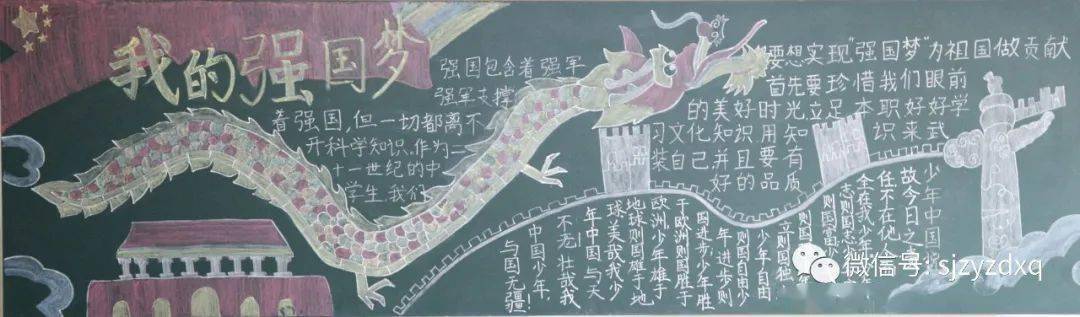 我的强国梦
强国包含着强军
强军支撑
着强国，但一切都离不
开科学知识，作为二
十一世纪的中
学生，我们
要想实现"强国梦"为祖国做贡献
首先要珍惜我们眼前
的美好时光立足本职好好学
习文化知识用知识来武
装自己并且要有
好的品质
少年中国说
故今日之责
任不在他人
全在我少年
志则国
则国富少
则国
立则国独
少年自由
则国自由少
年进步则
国进步少年胜
于欧洲则国胜于
欧洲少年雄于
地球则国雄于地
球美哉我少
年中国与天
不老壮哉我
中国少年，
与国无疆！
微信号: sjzyzdxq